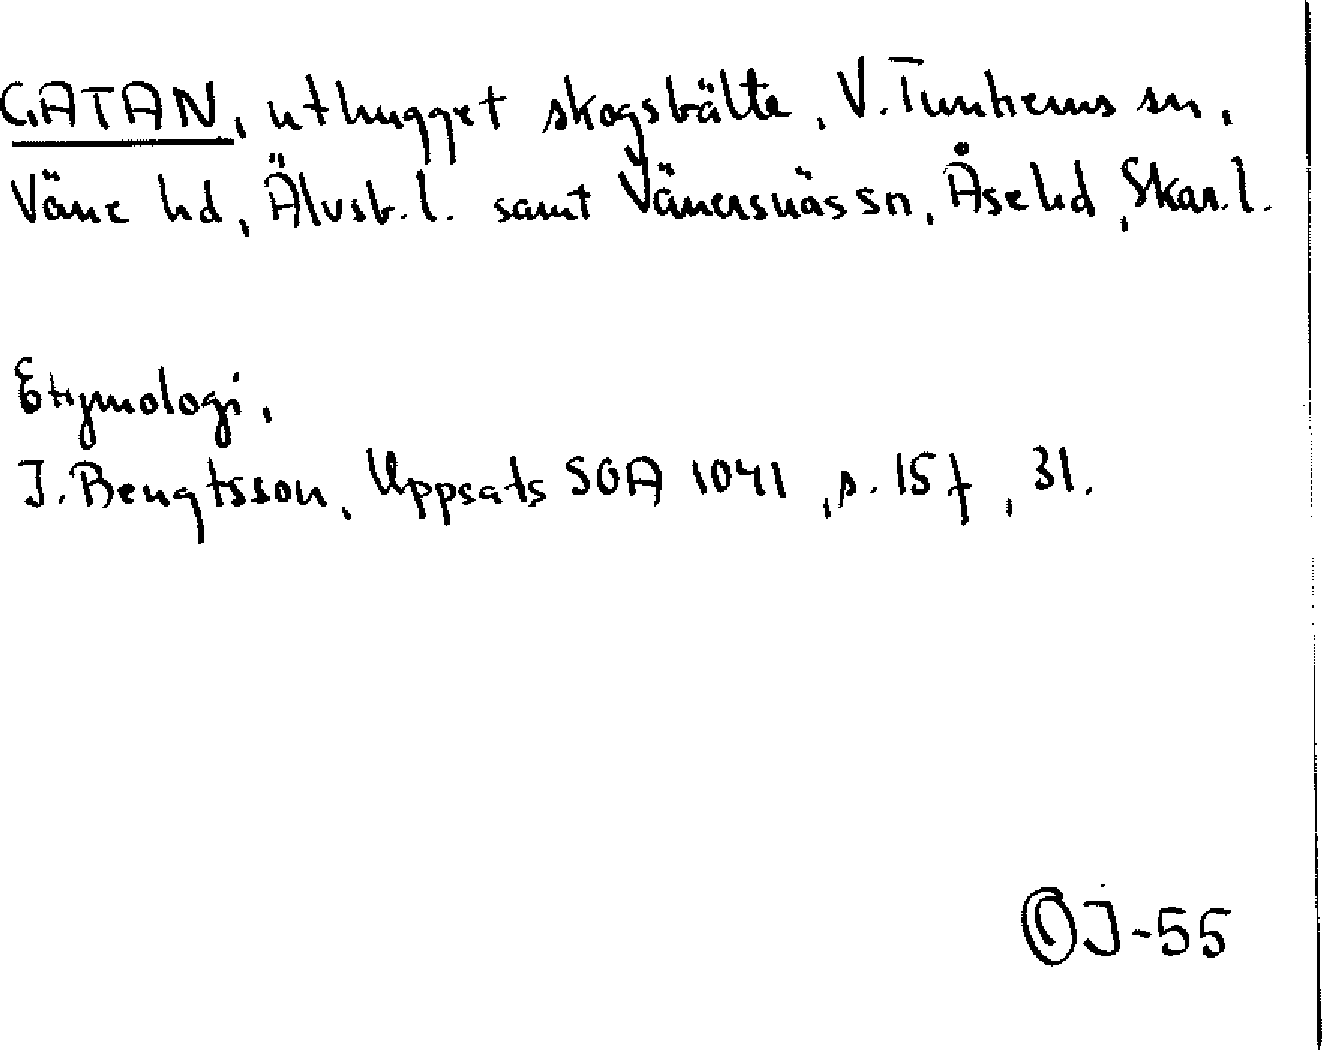 GATAN, uthugget skogsbälte, V. Tunhems sn,
Väne hd, Älvsb. l. samt Vänersnäs sn, Åse hd, Skar. l.
Etymologi,
I. Bengtsson, Uppsats SOA 1041, s. 15 f, 31.
OJ-55